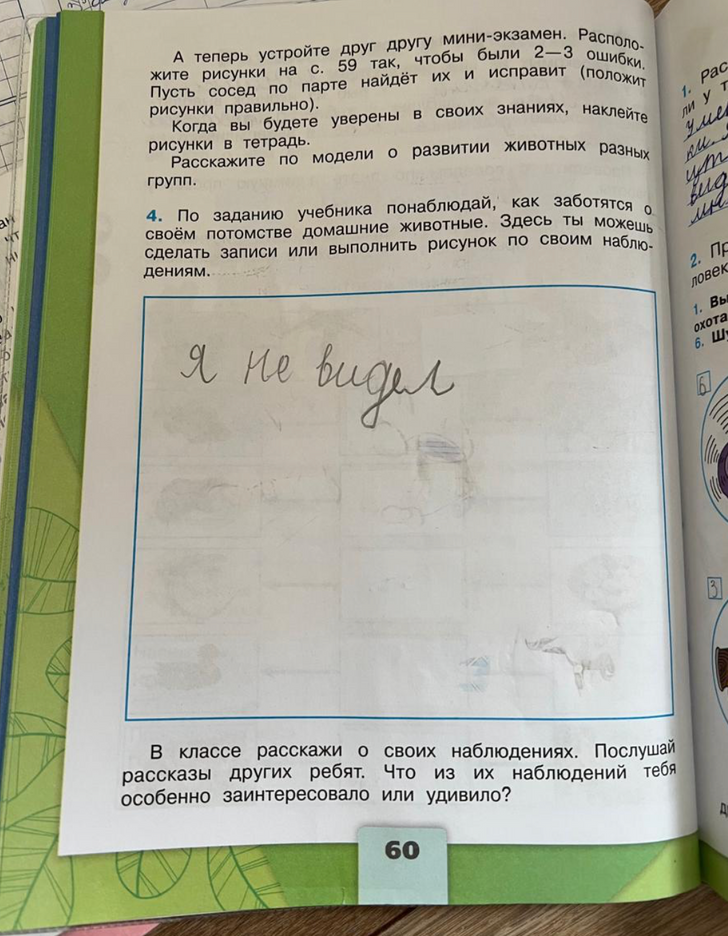 А теперь устройте друг другу мини-экзамен. Располо-
жите рисунки на с. 59 так, чтобы были 2—3 ошибки.
Пусть сосед по парте найдёт их и исправит (положит
рисунки правильно).
Когда вы будете уверены в своих знаниях, наклейте
рисунки в тетрадь.
Расскажите по модели о развитии животных разных
групп.
4. По заданию учебника понаблюдай, как заботятся о
своём потомстве домашние животные. Здесь ты можешь
сделать записи или выполнить рисунок по своим наблю-
дениям.
Я не видел
В классе расскажи о своих наблюдениях. Послушай
рассказы других ребят. Что из их наблюдений тебя
особенно заинтересовало или удивило?
60
1. Рас
ли у т
2. Пр
ловек
1. Вы
охота
6. Шу
6
3